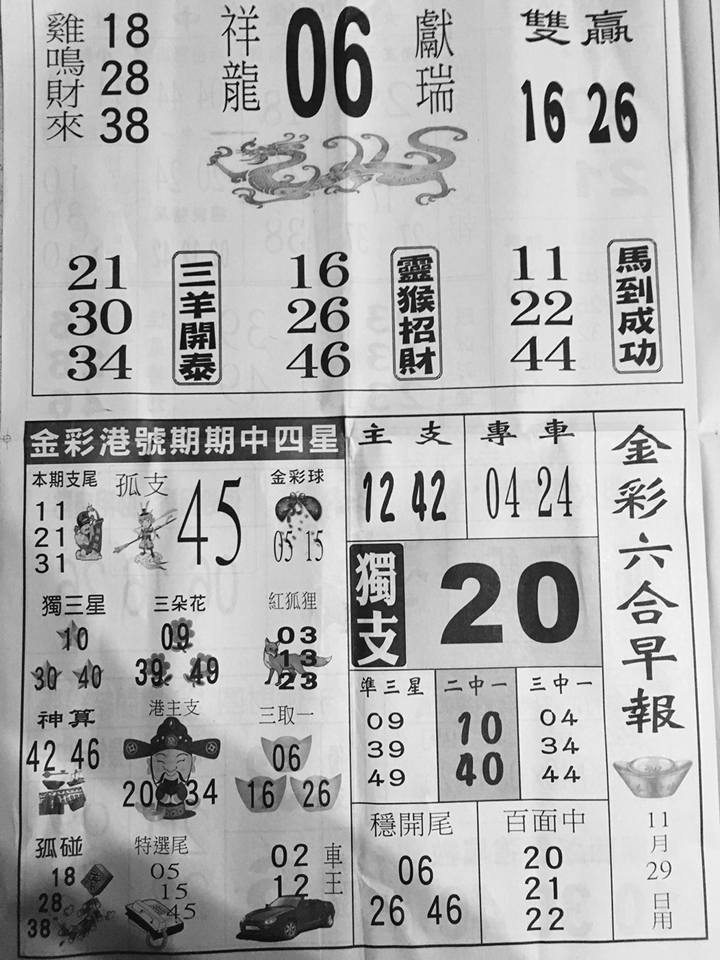 雞鳴財來
18
28
38
祥龍
06
獻瑞
雙贏
16 26
21
30
34
三羊開泰
16
26
46
靈猴招財
11
22
44
馬到成功
金彩港號期期中四星
本期支尾
11
21
31
孤支
45
金彩球
05 15
獨三星
10
30 40
三朵花
09
39 49
紅狐狸
03
13
23
神算
42 46
港主支
20 34
三取一
06
16 26
孤碰
18
28
38
特選尾
05
15
45
02
12
車王
主支
12 42
專車
04 24
獨支
20
準三星
09
39
49
二中一
10
40
三中一
04
34
44
穩開尾
06
26 46
百面中
20
21
22
金彩六合早報
11月29日用